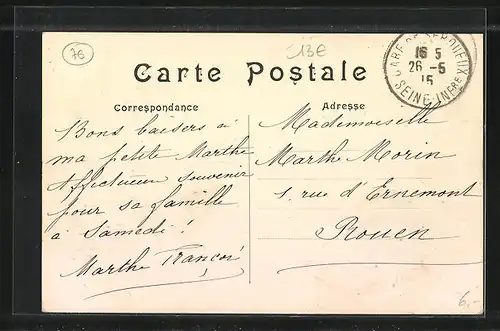 76
13€
Carte Postale
Correspondance
Adresse
GARE DE SEINE-INFRE
16 5
26 - 5
15
Bons baisers à
ma petite Marthe
Affectueux souvenir
pour sa famille
à Samedi !
Marthe
Mademoiselle
Marthe Morin
1. rue d'Ernemont
Rouen
6.-